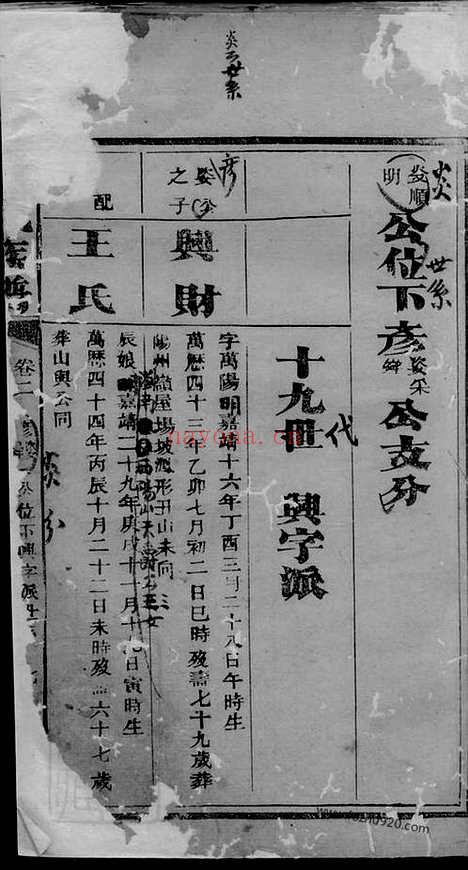 炎公世系
炎
世系
發順
明
公位下彥
姿采
公支分
十九世
代
興字派
彥
姿公
之子
興財
字萬陽明嘉靖十六年丁酉三月二十八日午時生
萬歷四十三年乙卯七月初二日巳時歿壽七十九歲葬
陽州嶺屋場坡
形丑山未向
配
王氏
辰娘
嘉靖二十九年庚戌十一月十九日寅時生
萬歷四十四年丙辰十月二十二日未時歿
六十七歲
葬山與公同
炎分
卷二
公位下興字派世
nayona.com
www.fozhu920.com